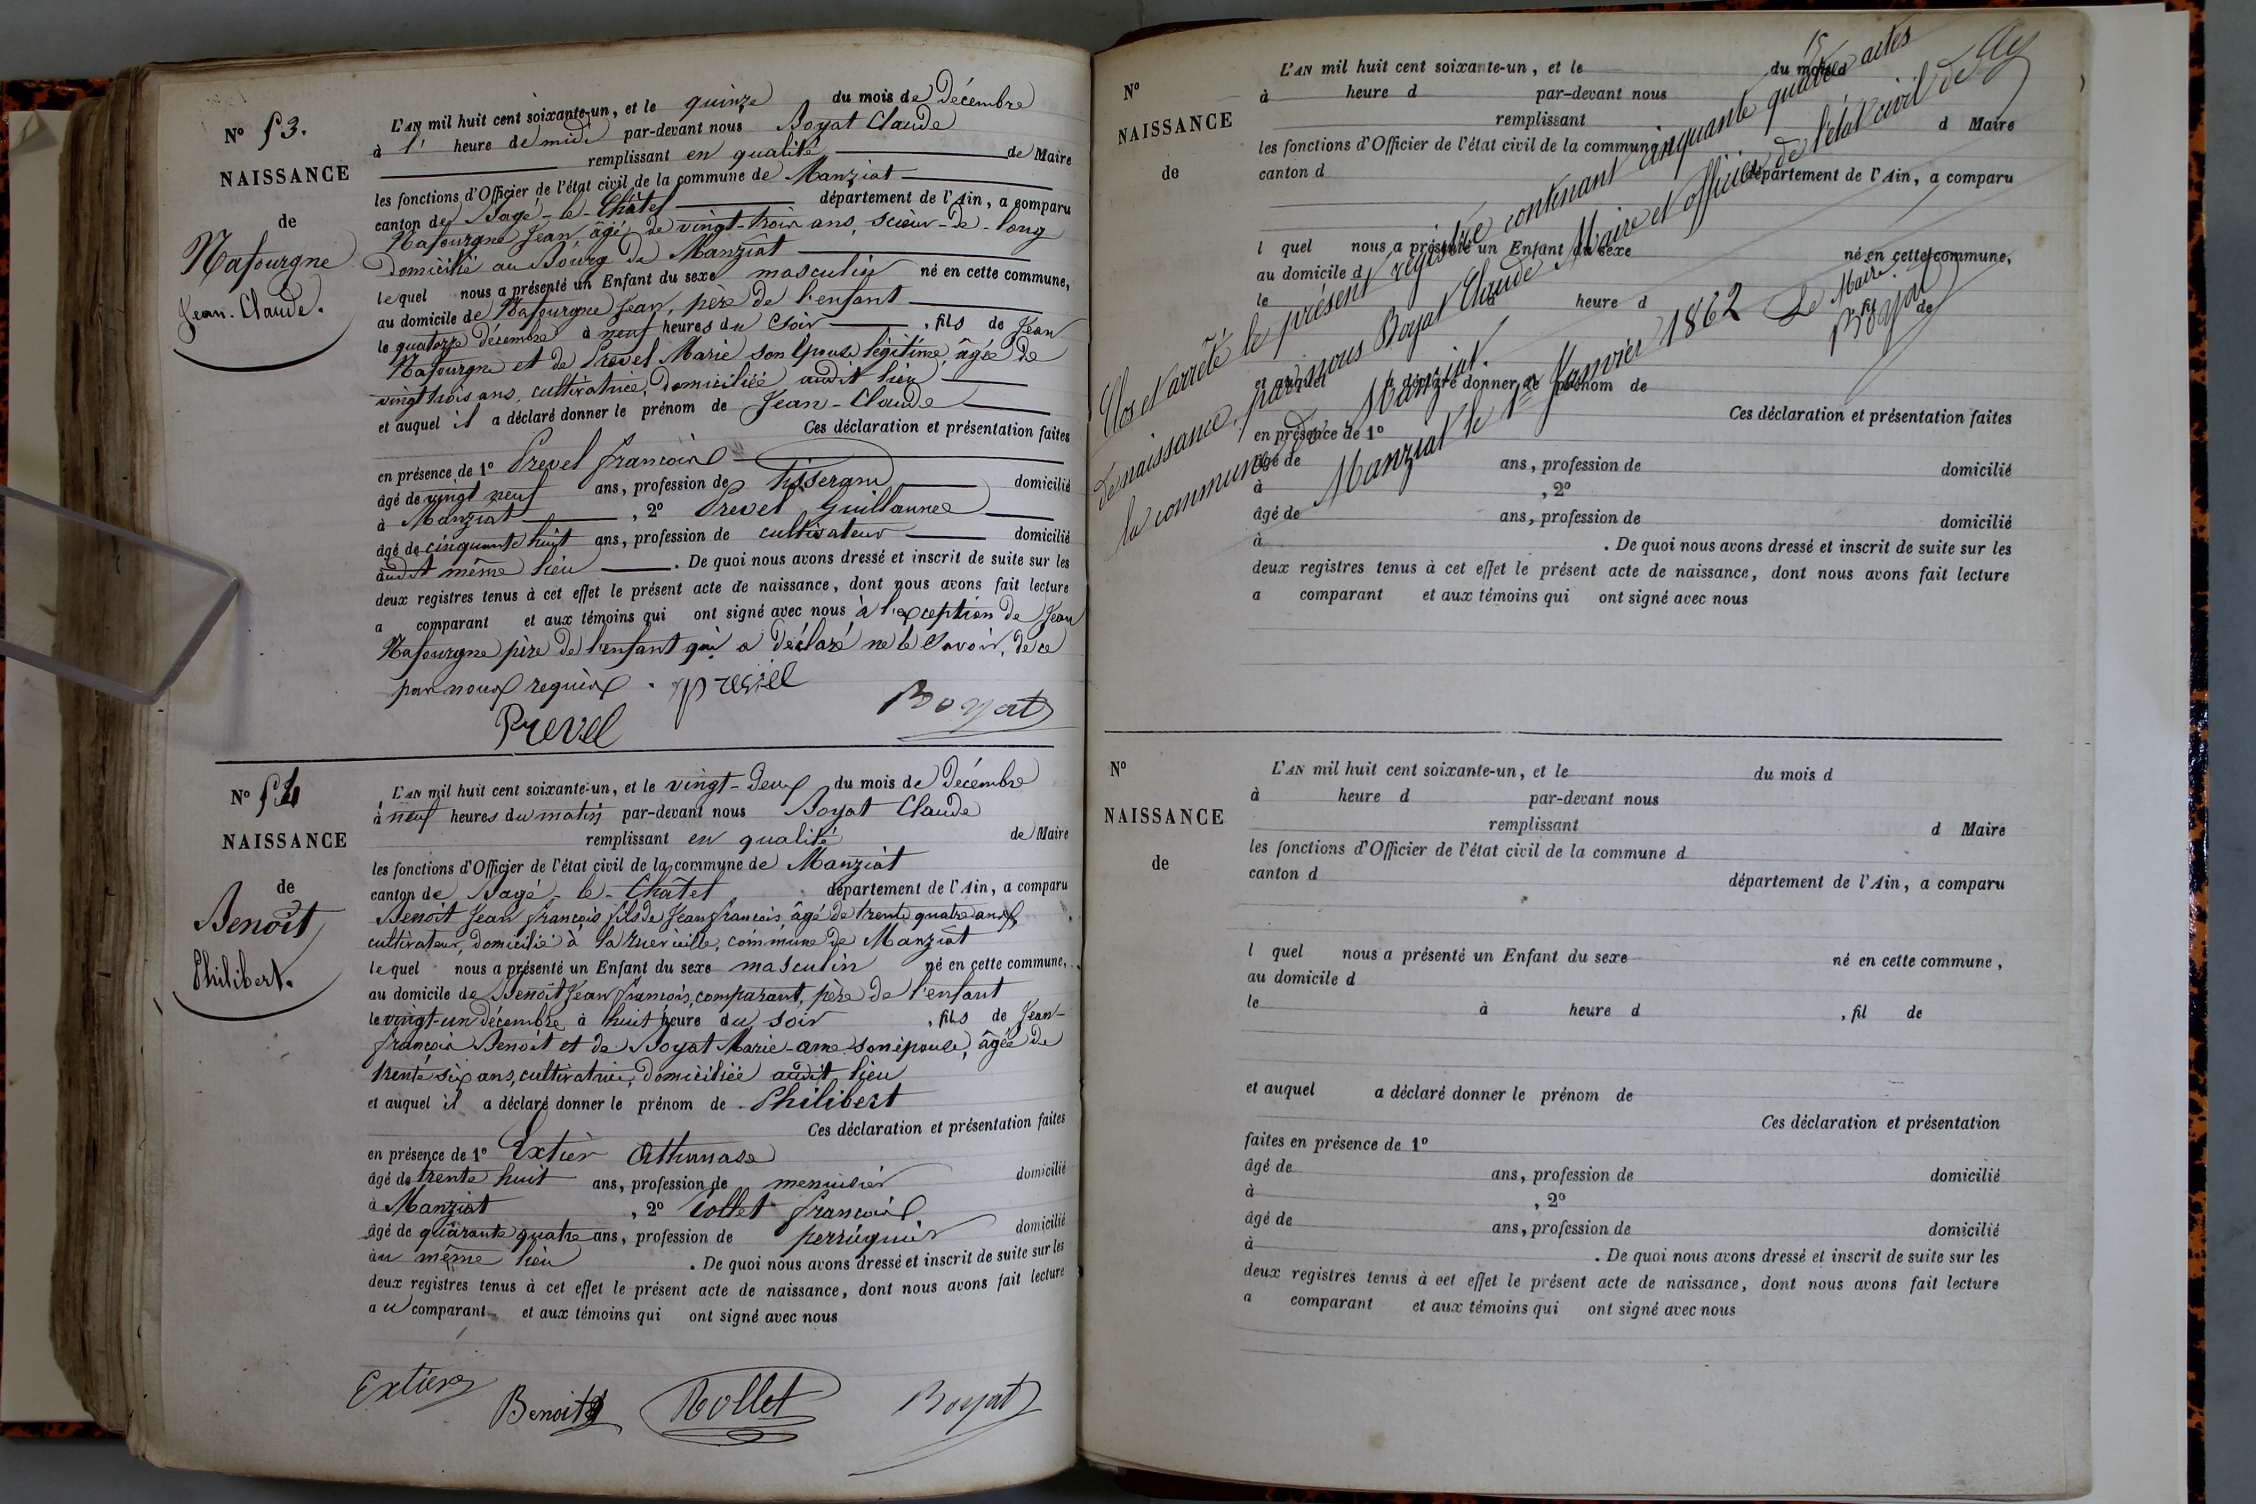 N° 53.
NAISSANCE
de
Nafourgne
Jean-Claude.
L'AN mil huit cent soixante-un, et le quinze du mois de Décembre
à l' heure de midi par-devant nous Boyat Claude
remplissant en qualité de Maire
les fonctions d'Officier de l'état civil de la commune de Manziat
canton de Bagé-le-Châtel département de l'Ain, a comparu
Nafourgne Jean âgé de vingt-trois ans, scieur-de-long
domicilié au Bourg de Manziat
lequel nous a présenté un Enfant du sexe masculin né en cette commune,
au domicile de Nafourgne Jean, père de l'enfant
le quatorze décembre à neuf heures du soir, fils de Jean
Nafourgne et de Prevel Marie son épouse légitime, âgée de
vingt trois ans, cultivatrice, domiciliée audit lieu
et auquel il a déclaré donner le prénom de Jean-Claude
Ces déclaration et présentation faites
en présence de 1° Prevel françois
âgé de vingt neuf ans, profession de Tisserand domicilié
à Manziat, 2° Prevel Guillaume
âgé de cinquante huit ans, profession de cultivateur domicilié
audit même lieu. De quoi nous avons dressé et inscrit de suite sur les
deux registres tenus à cet effet le présent acte de naissance, dont nous avons fait lecture
a comparant et aux témoins qui ont signé avec nous à l'exception de Jean
Nafourgne père de l'enfant qui a déclaré ne le savoir, de ce
par nous requis. prevel
Prevel
Boyat
N° 54
NAISSANCE
de
Benoît
Philibert.
L'AN mil huit cent soixante-un, et le vingt-deux du mois de Décembre
à neuf heures du matin par-devant nous Boyat Claude
remplissant en qualité de Maire
les fonctions d'Officier de l'état civil de la commune de Manziat
canton de Bagé-le-Châtel département de l'Ain, a comparu
Benoît Jean françois fils de Jean françois âgé de trente quatre ans
cultivateur, domicilié à la rue vieille, commune de Manziat
lequel nous a présenté un Enfant du sexe masculin né en cette commune,
au domicile de Benoît Jean françois, comparant, père de l'enfant
le vingt-un décembre à huit heure du soir, fils de Jean-
françois Benoît et de Boyat Marie-anne son épouse, âgée de
trente six ans, cultivatrice, domiciliée audit lieu
et auquel il a déclaré donner le prénom de Philibert
Ces déclaration et présentation faites
en présence de 1° Extier Athanase
âgé de trente huit ans, profession de menuisier domicilié
à Manziat, 2° Collet françois
âgé de quarante quatre ans, profession de perruquier domicilié
au même lieu. De quoi nous avons dressé et inscrit de suite sur les
deux registres tenus à cet effet le présent acte de naissance, dont nous avons fait lecture
au comparant et aux témoins qui ont signé avec nous
Extier
Benoit
Collet
Boyat
N°
NAISSANCE
de
L'AN mil huit cent soixante-un, et le du mois d
à heure d par-devant nous
remplissant d Maire
les fonctions d'Officier de l'état civil de la commune d
canton d département de l'Ain, a comparu
l quel nous a présenté un Enfant du sexe né en cette commune,
au domicile d
le à heure d, fil de
et auquel a déclaré donner le prénom de
Ces déclaration et présentation faites
en présence de 1°
âgé de ans, profession de domicilié
à , 2°
âgé de ans, profession de domicilié
à . De quoi nous avons dressé et inscrit de suite sur les
deux registres tenus à cet effet le présent acte de naissance, dont nous avons fait lecture
a comparant et aux témoins qui ont signé avec nous
Clos et arrêté le présent registre contenant cinquante quatre actes
de naissance, par nous Boyat Claude Maire et officier de l'état civil de
la commune de Manziat.
Manziat le 1er Janvier 1862 Le Maire
Boyat
N°
NAISSANCE
de
L'AN mil huit cent soixante-un, et le du mois d
à heure d par-devant nous
remplissant d Maire
les fonctions d'Officier de l'état civil de la commune d
canton d département de l'Ain, a comparu
l quel nous a présenté un Enfant du sexe né en cette commune,
au domicile d
le à heure d , fil de
et auquel a déclaré donner le prénom de
Ces déclaration et présentation
faites en présence de 1°
âgé de ans, profession de domicilié
à , 2°
âgé de ans, profession de domicilié
à . De quoi nous avons dressé et inscrit de suite sur les
deux registres tenus à cet effet le présent acte de naissance, dont nous avons fait lecture
a comparant et aux témoins qui ont signé avec nous